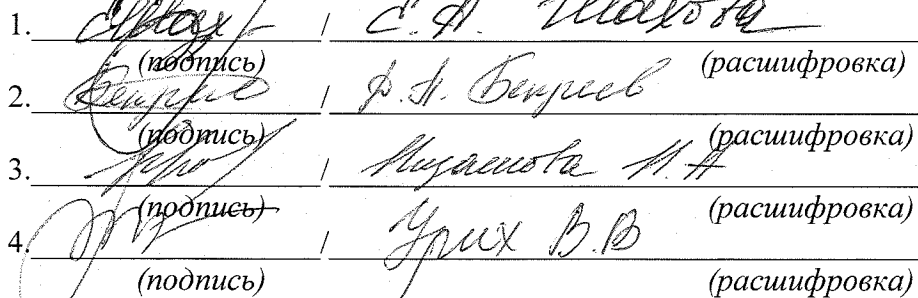 1. / Е. А. Шахова
(подпись) (расшифровка)
2. / Бекреев
(подпись) (расшифровка)
3. / Низамова Н. А
(подпись) (расшифровка)
4. / Урих В. В
(подпись) (расшифровка)